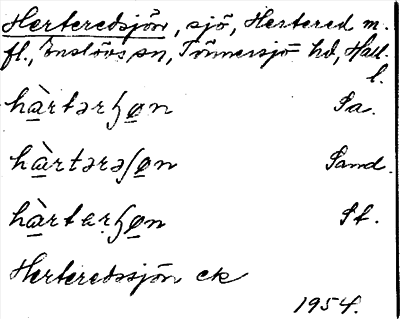 Herteredsjön, sjö, Hertered m.
fl., Enslövs sn, Tönnersjö hd, Hall.
l.
hàrtərʃo̲n Sa.
hàrtərəʃo̲n Sand.
hàrtɐrʃo̲n St.
Herteredssjön ek
1954.